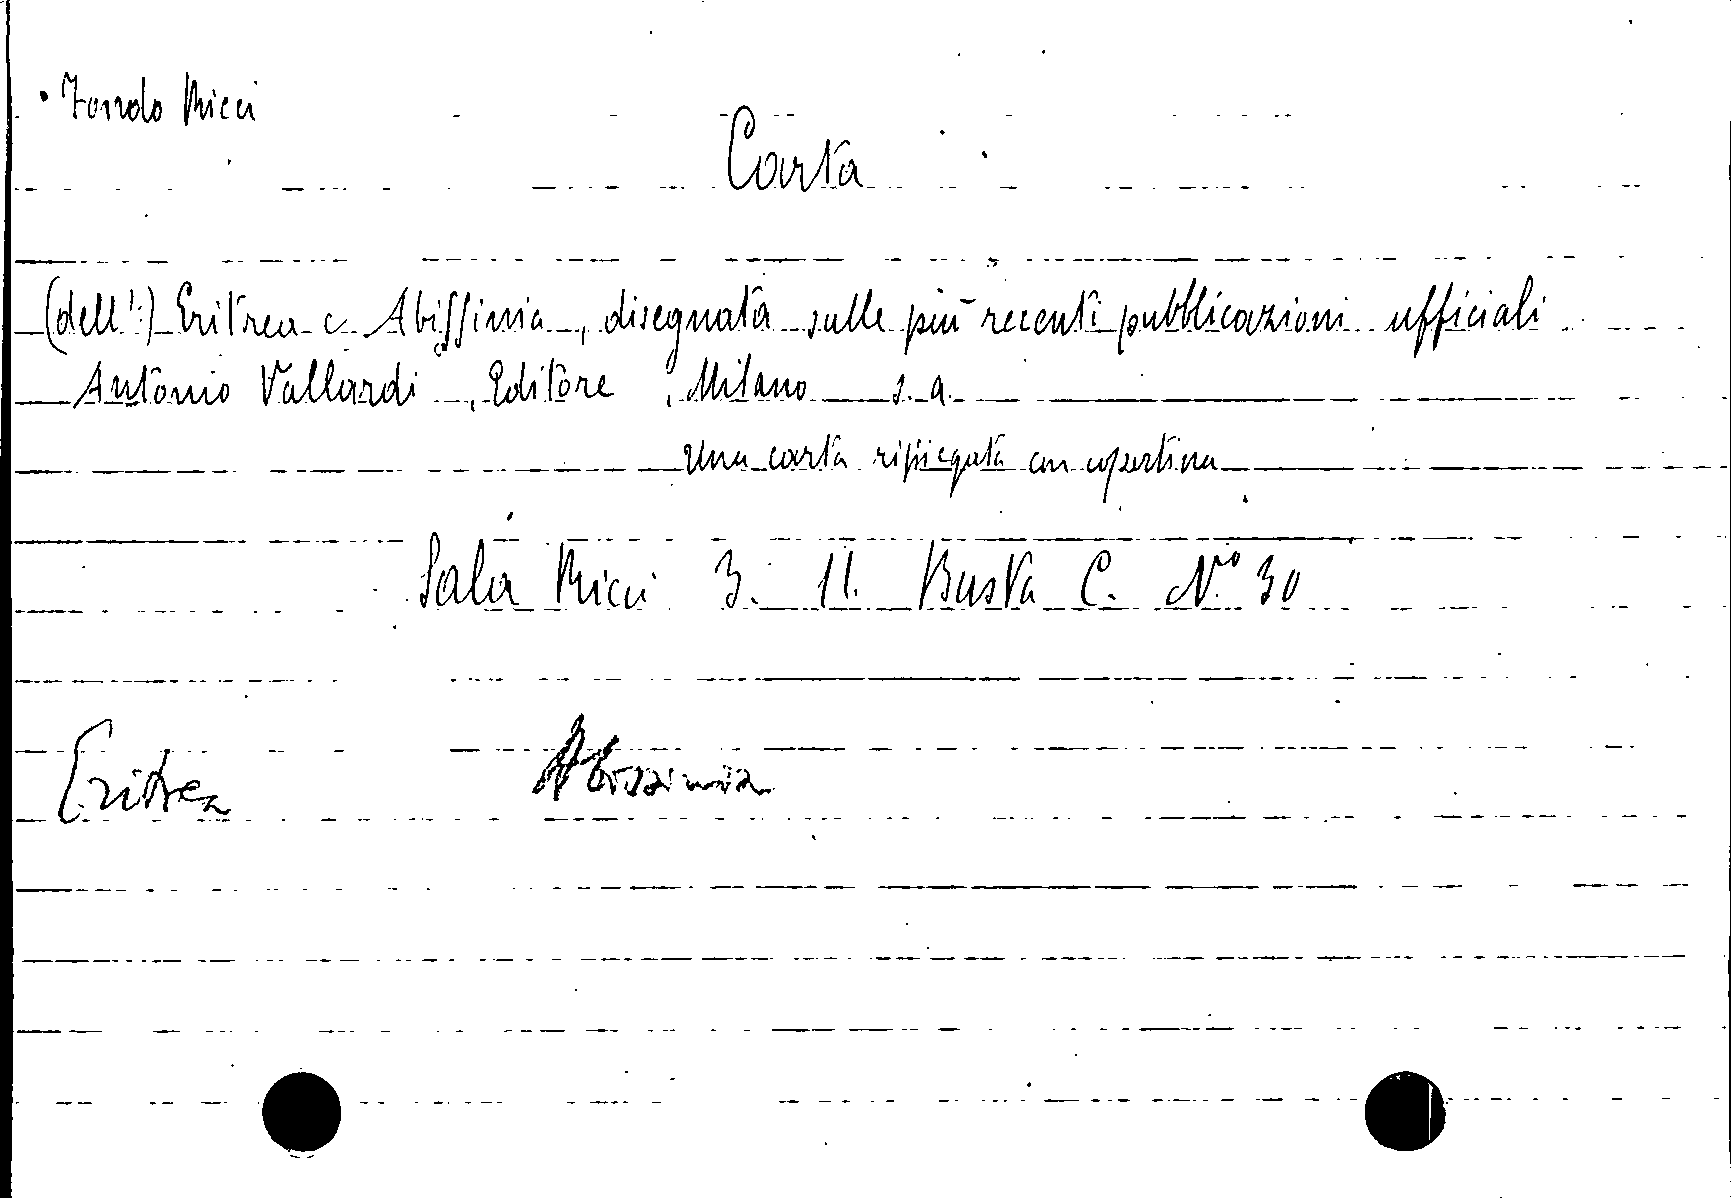 Fondo Ricci
Carta
(dell') Eritrea e Abissinia, disegnata sulle più recenti pubblicazioni ufficiali
Antonio Vallardi, Editore, Milano s.a.
Una carta ripiegata con copertina
Sala Ricci 3. 11. Busta C. N° 30
Eritrea Abissinia